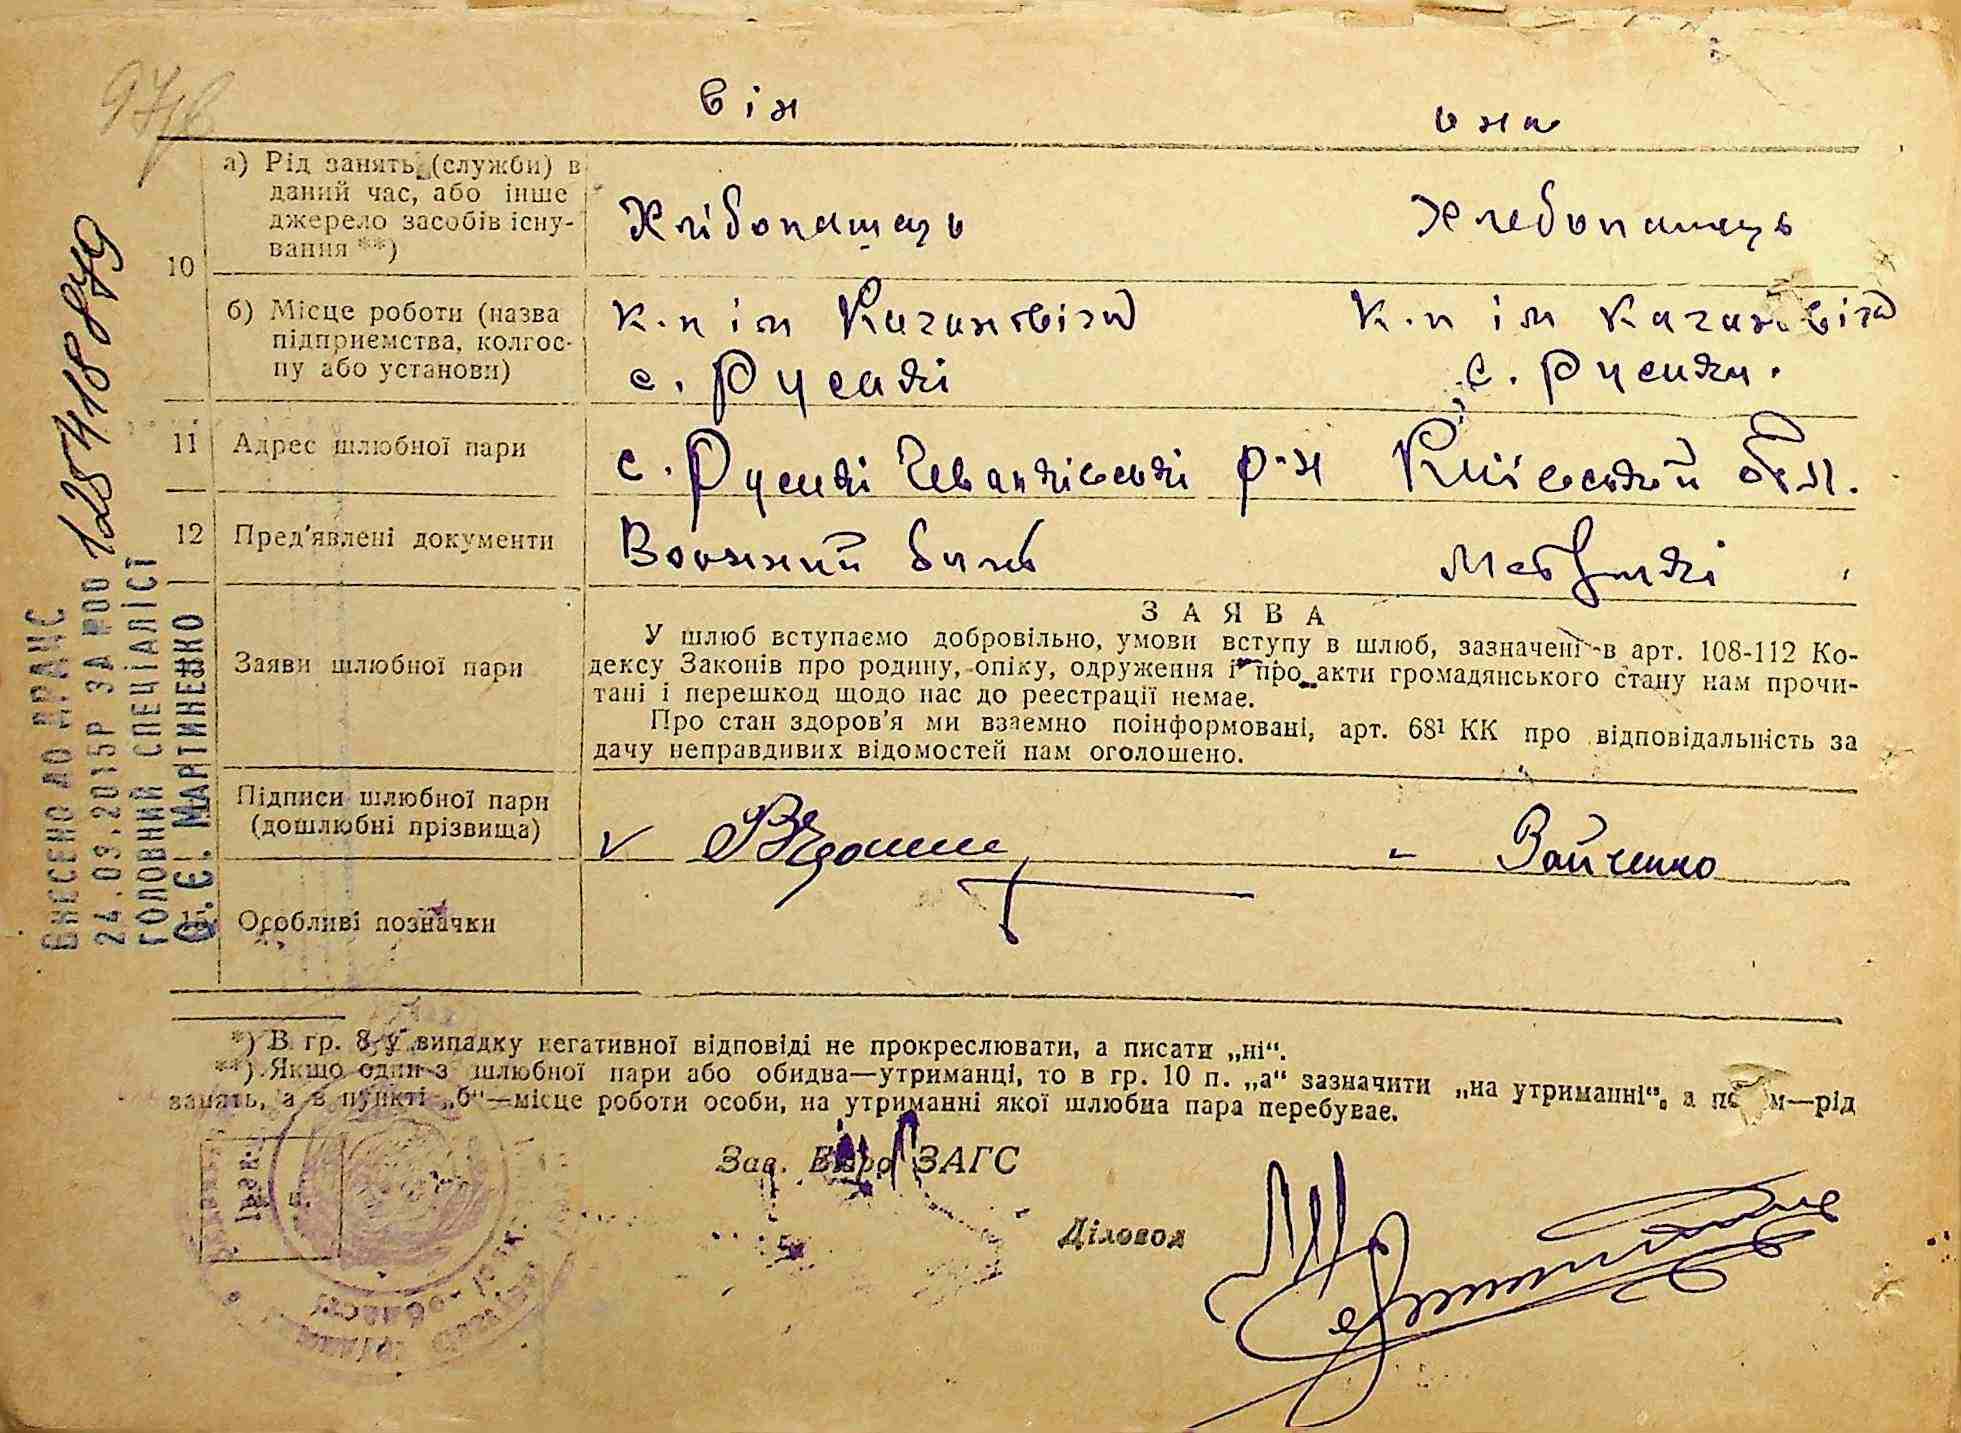 він
вна
10
а) Рід занять (служби) в
даний час, або інше
джерело засобів існу-
вання **)
Хлібопашець
Хлебопашець
б) Місце роботи (назва
підприємства, колгос-
пу або установи)
к.п ім Кагановіча
с. Русакі
к.п ім Кагановіча
с. Русаки.
11
Адрес шлюбної пари
с. Русакі Іванківські р-н Київський обл.
12
Пред'явлені документи
Воєнний билє
Метрикі
Заяви шлюбної пари
ЗАЯВА
У шлюб вступаємо добровільно, умови вступу в шлюб, зазначені в арт. 108-112 Ко-
дексу Законів про родину, опіку, одруження і про акти громадянського стану нам прочи-
тані і перешкод щодо нас до реєстрації немає.
Про стан здоров'я ми взаємно поінформовані, арт. 68¹ КК про відповідальність за
дачу неправдивих відомостей нам оголошено.
Підписи шлюбної пари
(дошлюбні прізвища)
Зайченко
15
Особливі позначки
*) В гр. 8 у випадку негативної відповіді не прокреслювати, а писати „ні“.
**) Якщо один з шлюбної пари або обидва—утриманці, то в гр. 10 п. „а“ зазначити „на утриманні“, а по м—рід
занять, а в пункті „б“—місце роботи особи, на утриманні якої шлюбна пара перебуває.
Зав. Бюро ЗАГС
Діловод
ВНЕСЕНО ДО ДРАЦС
24.03.2015Р ЗА №00 128418879
ГОЛОВНИЙ СПЕЦІАЛІСТ
О.Є. МАРТИНЕНКО